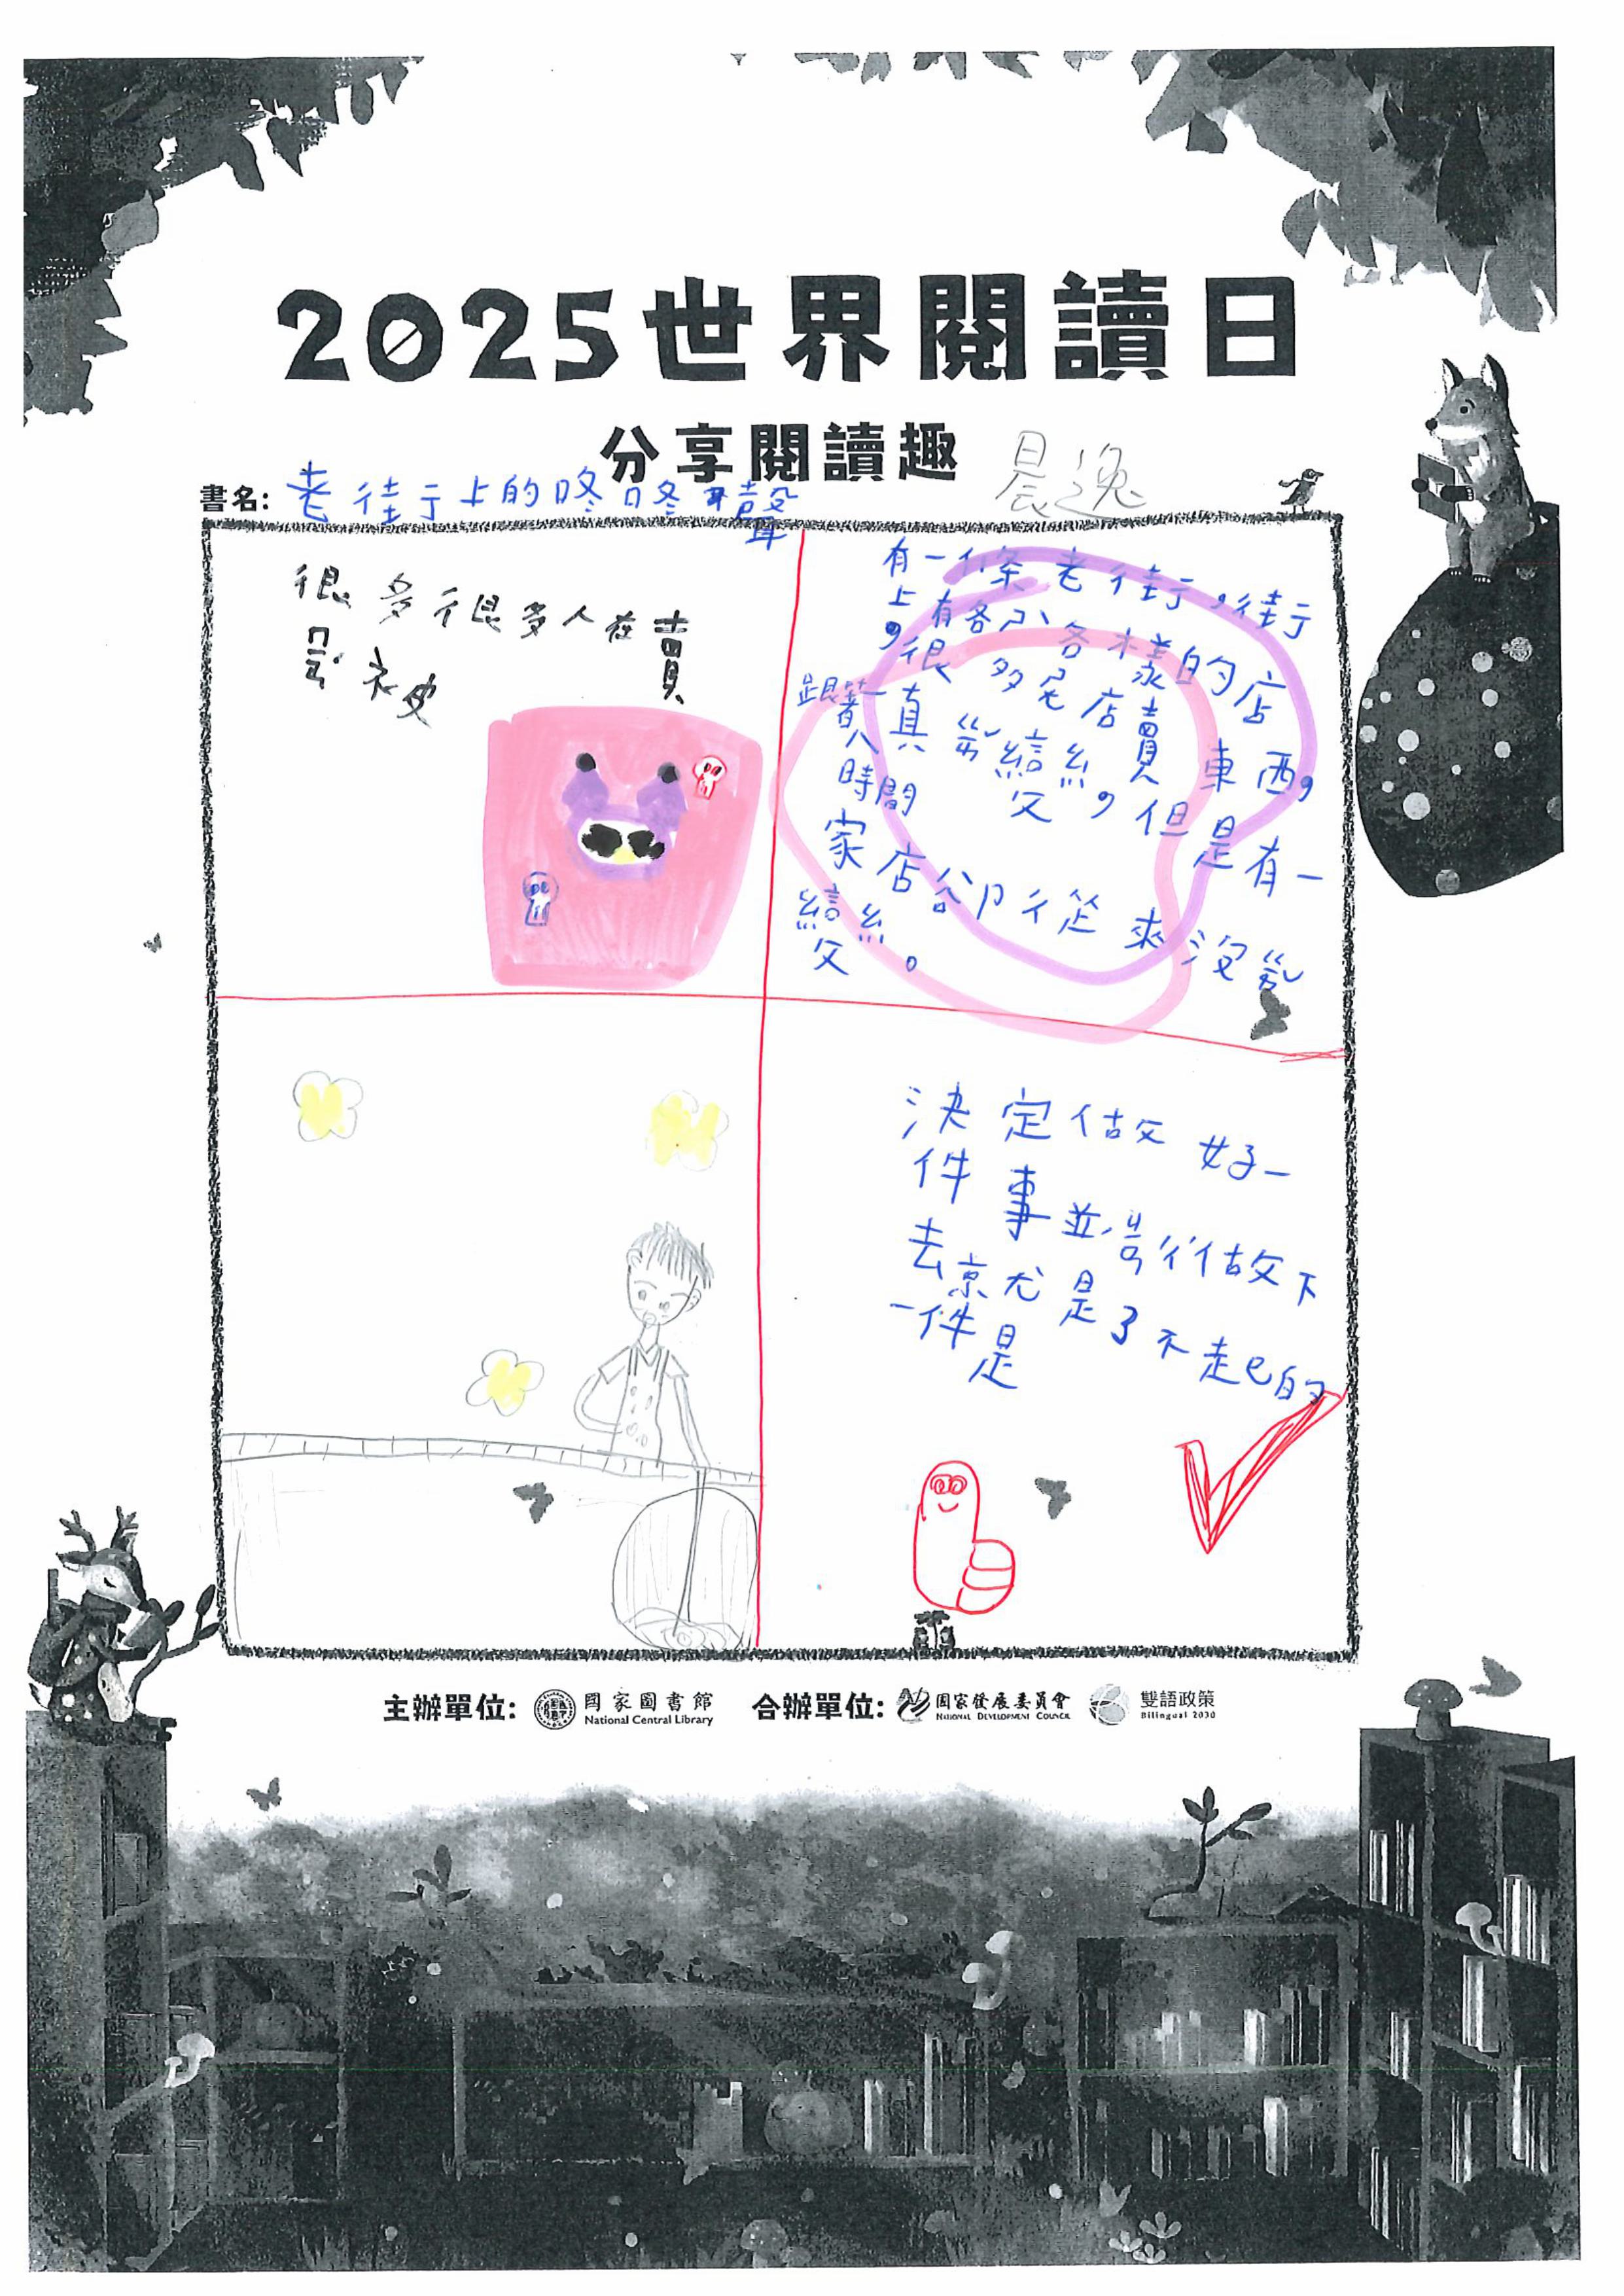 2025世界閱讀日
分享閱讀趣
晨逸
書名: 老街上的咚咚聲
很多很多人在賣
被
有一條老街,街
上有各式各樣的店
,很多店賣東西,
跟著時間
真
但是有一
家店卻從來沒
。
決定做好一
件事並
做下
去
是了不起的
一件是
主辦單位: 國家圖書館 National Central Library
合辦單位: 國家發展委員會 National Development Council 雙語政策 Bilingual 2030